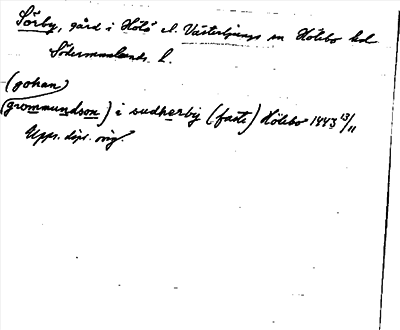 Sörby, gård i Hölö el. Västerljungs sn Hölebo hd
Södermanlands l.
(johan
(grommundson) i sudherby (faste) Hölebo 1443 13/11
Upps. dipl. orig.